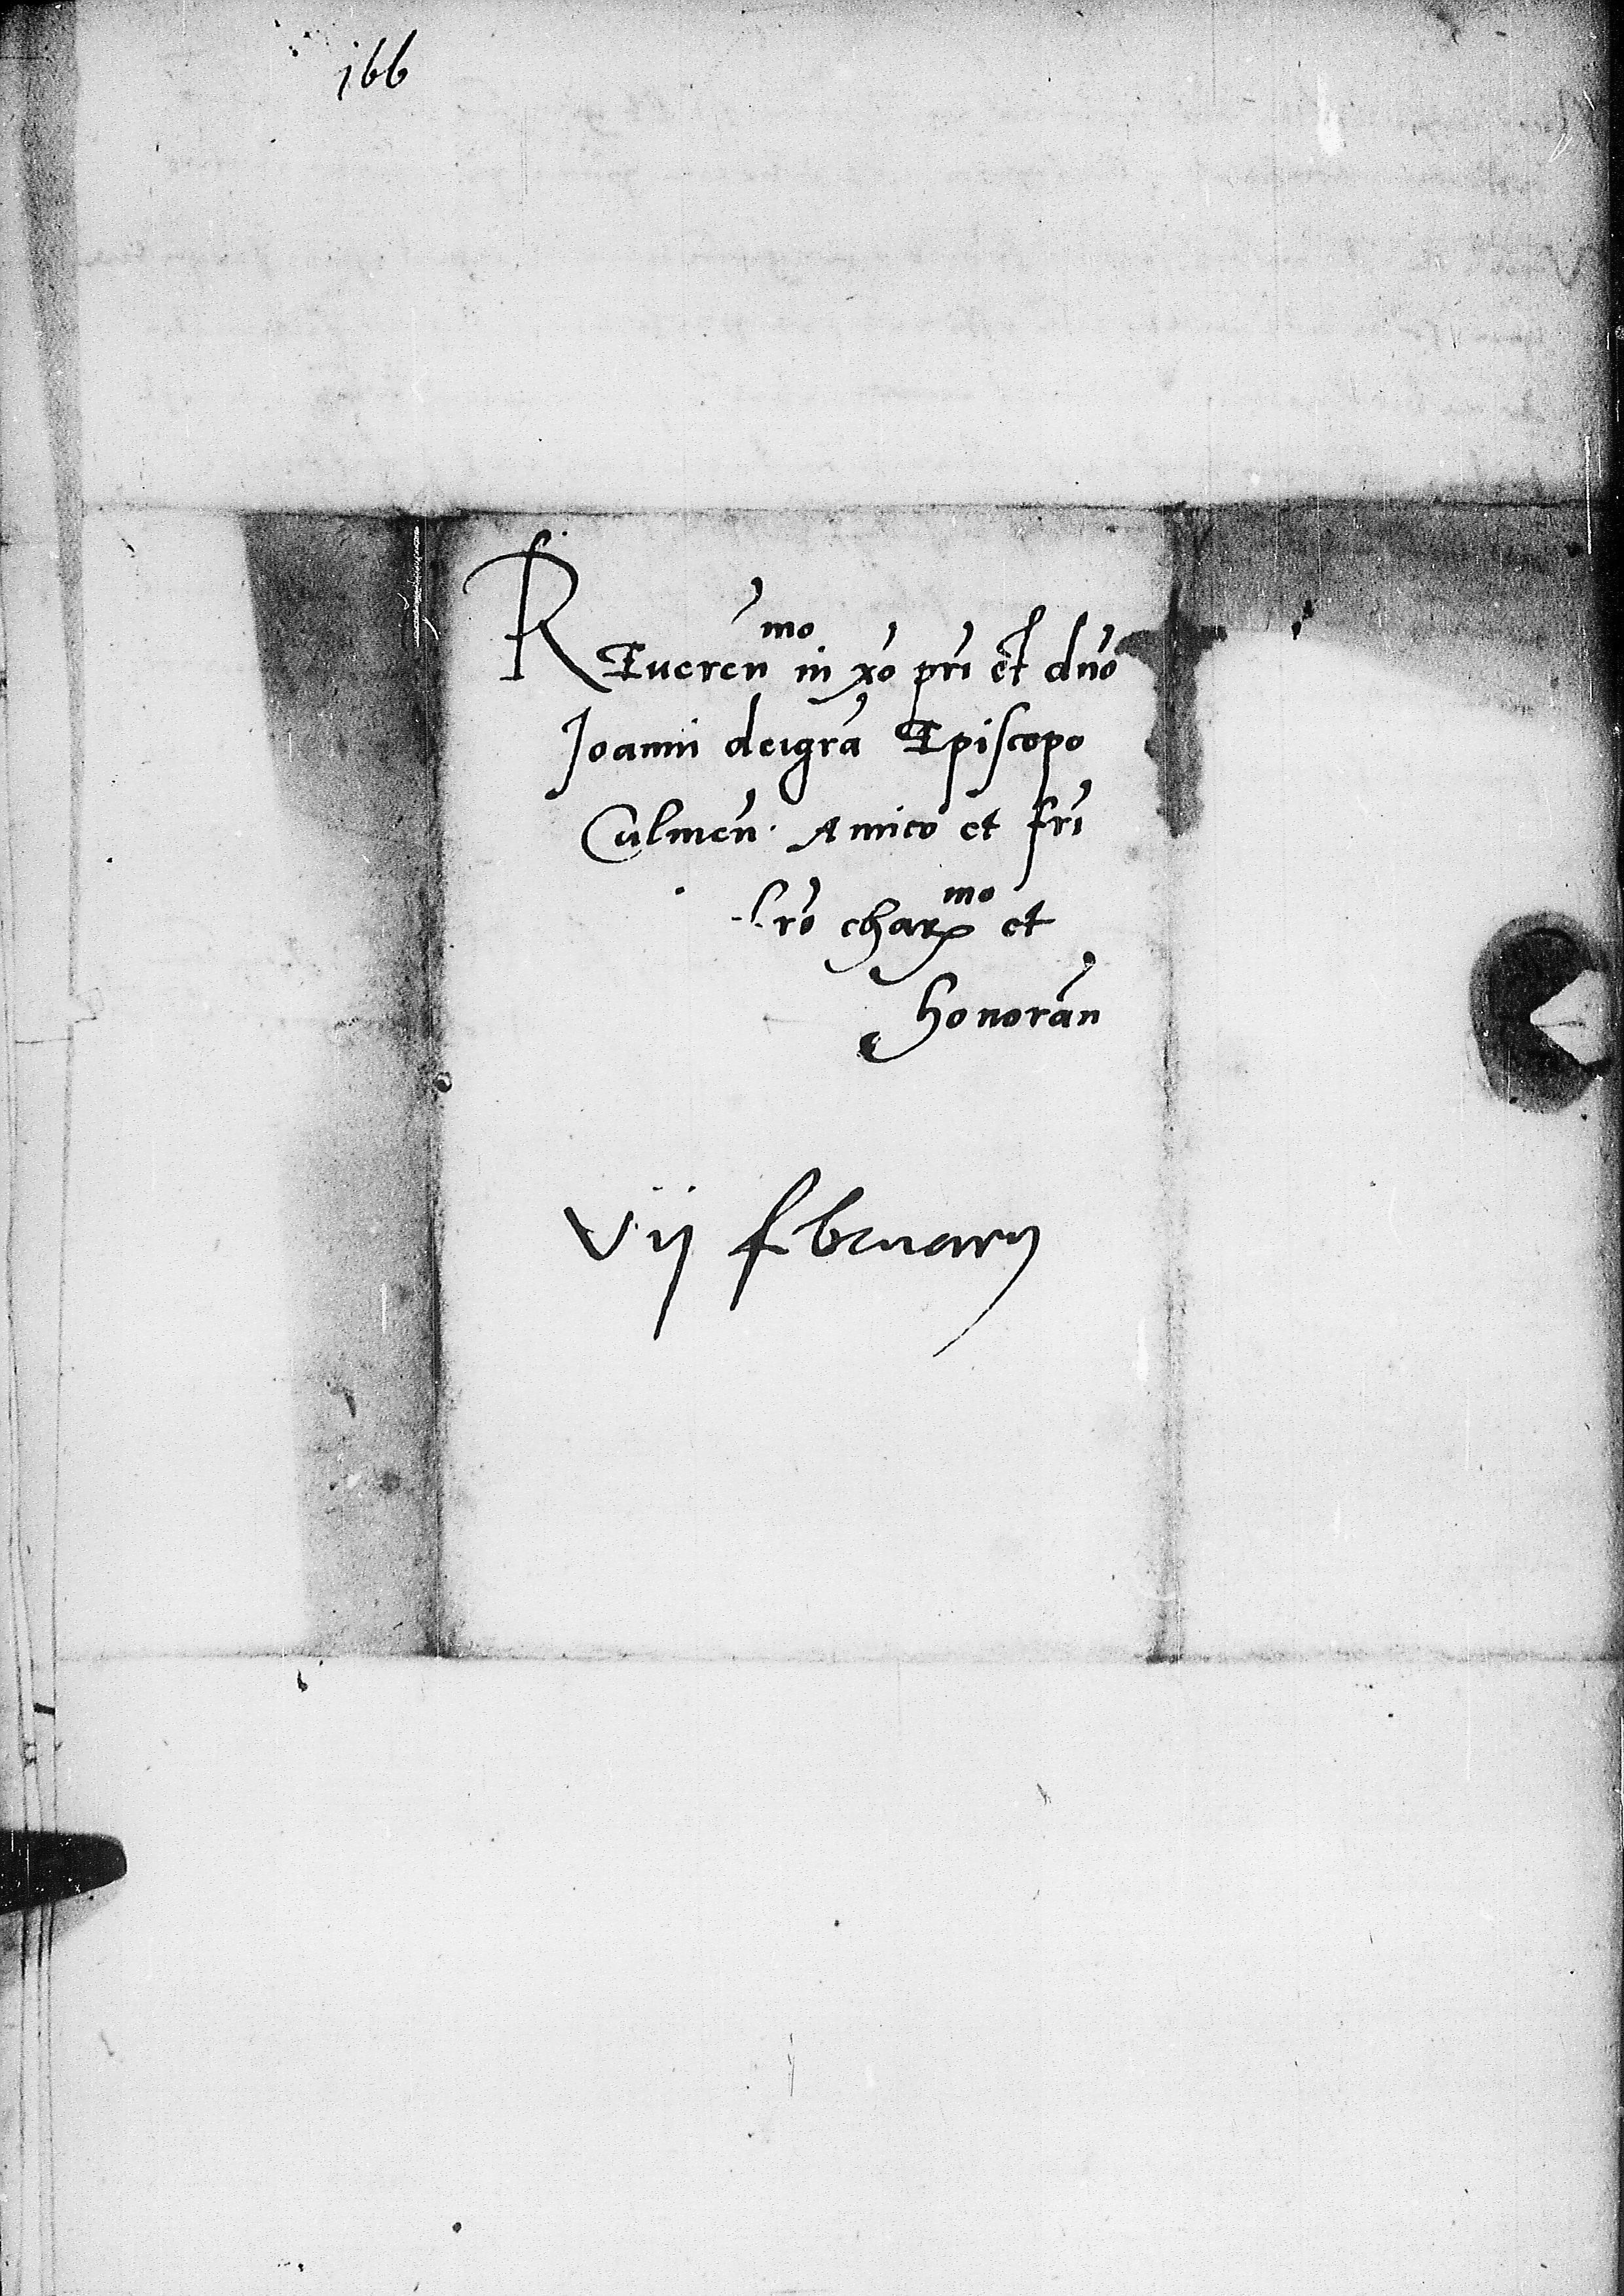 166
REueren̄mo in xo pri et dno
Joanni dei gra Episcopo
Culmen. Amico et fri
nro charmo et
honoran
Vij february